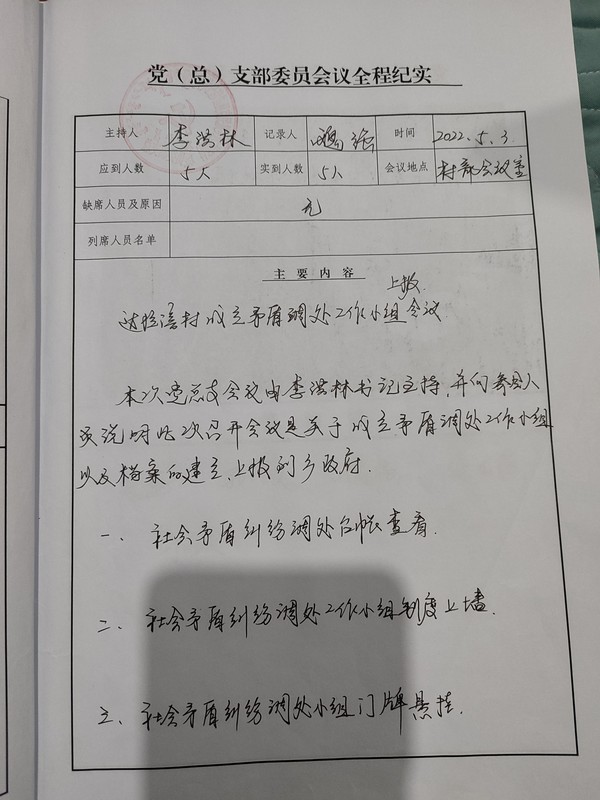 党（总）支部委员会议全程纪实
主持人 李洪林 记录人 时间 2022.5.3
应到人数 5人 实到人数 5人 会议地点 村部会议室
缺席人员及原因 无
列席人员名单
主要内容
上报
村成立矛盾调处工作小组会议
本次党总支会议由李洪林书记主持，并向参会人
员说明此次召开会议是关于成立矛盾调处工作小组
以及档案的建立，上报到乡政府.
一、社会矛盾纠纷调处台帐查看.
二、社会矛盾纠纷调处工作小组制度上墙.
三、社会矛盾纠纷调处小组门牌悬挂.